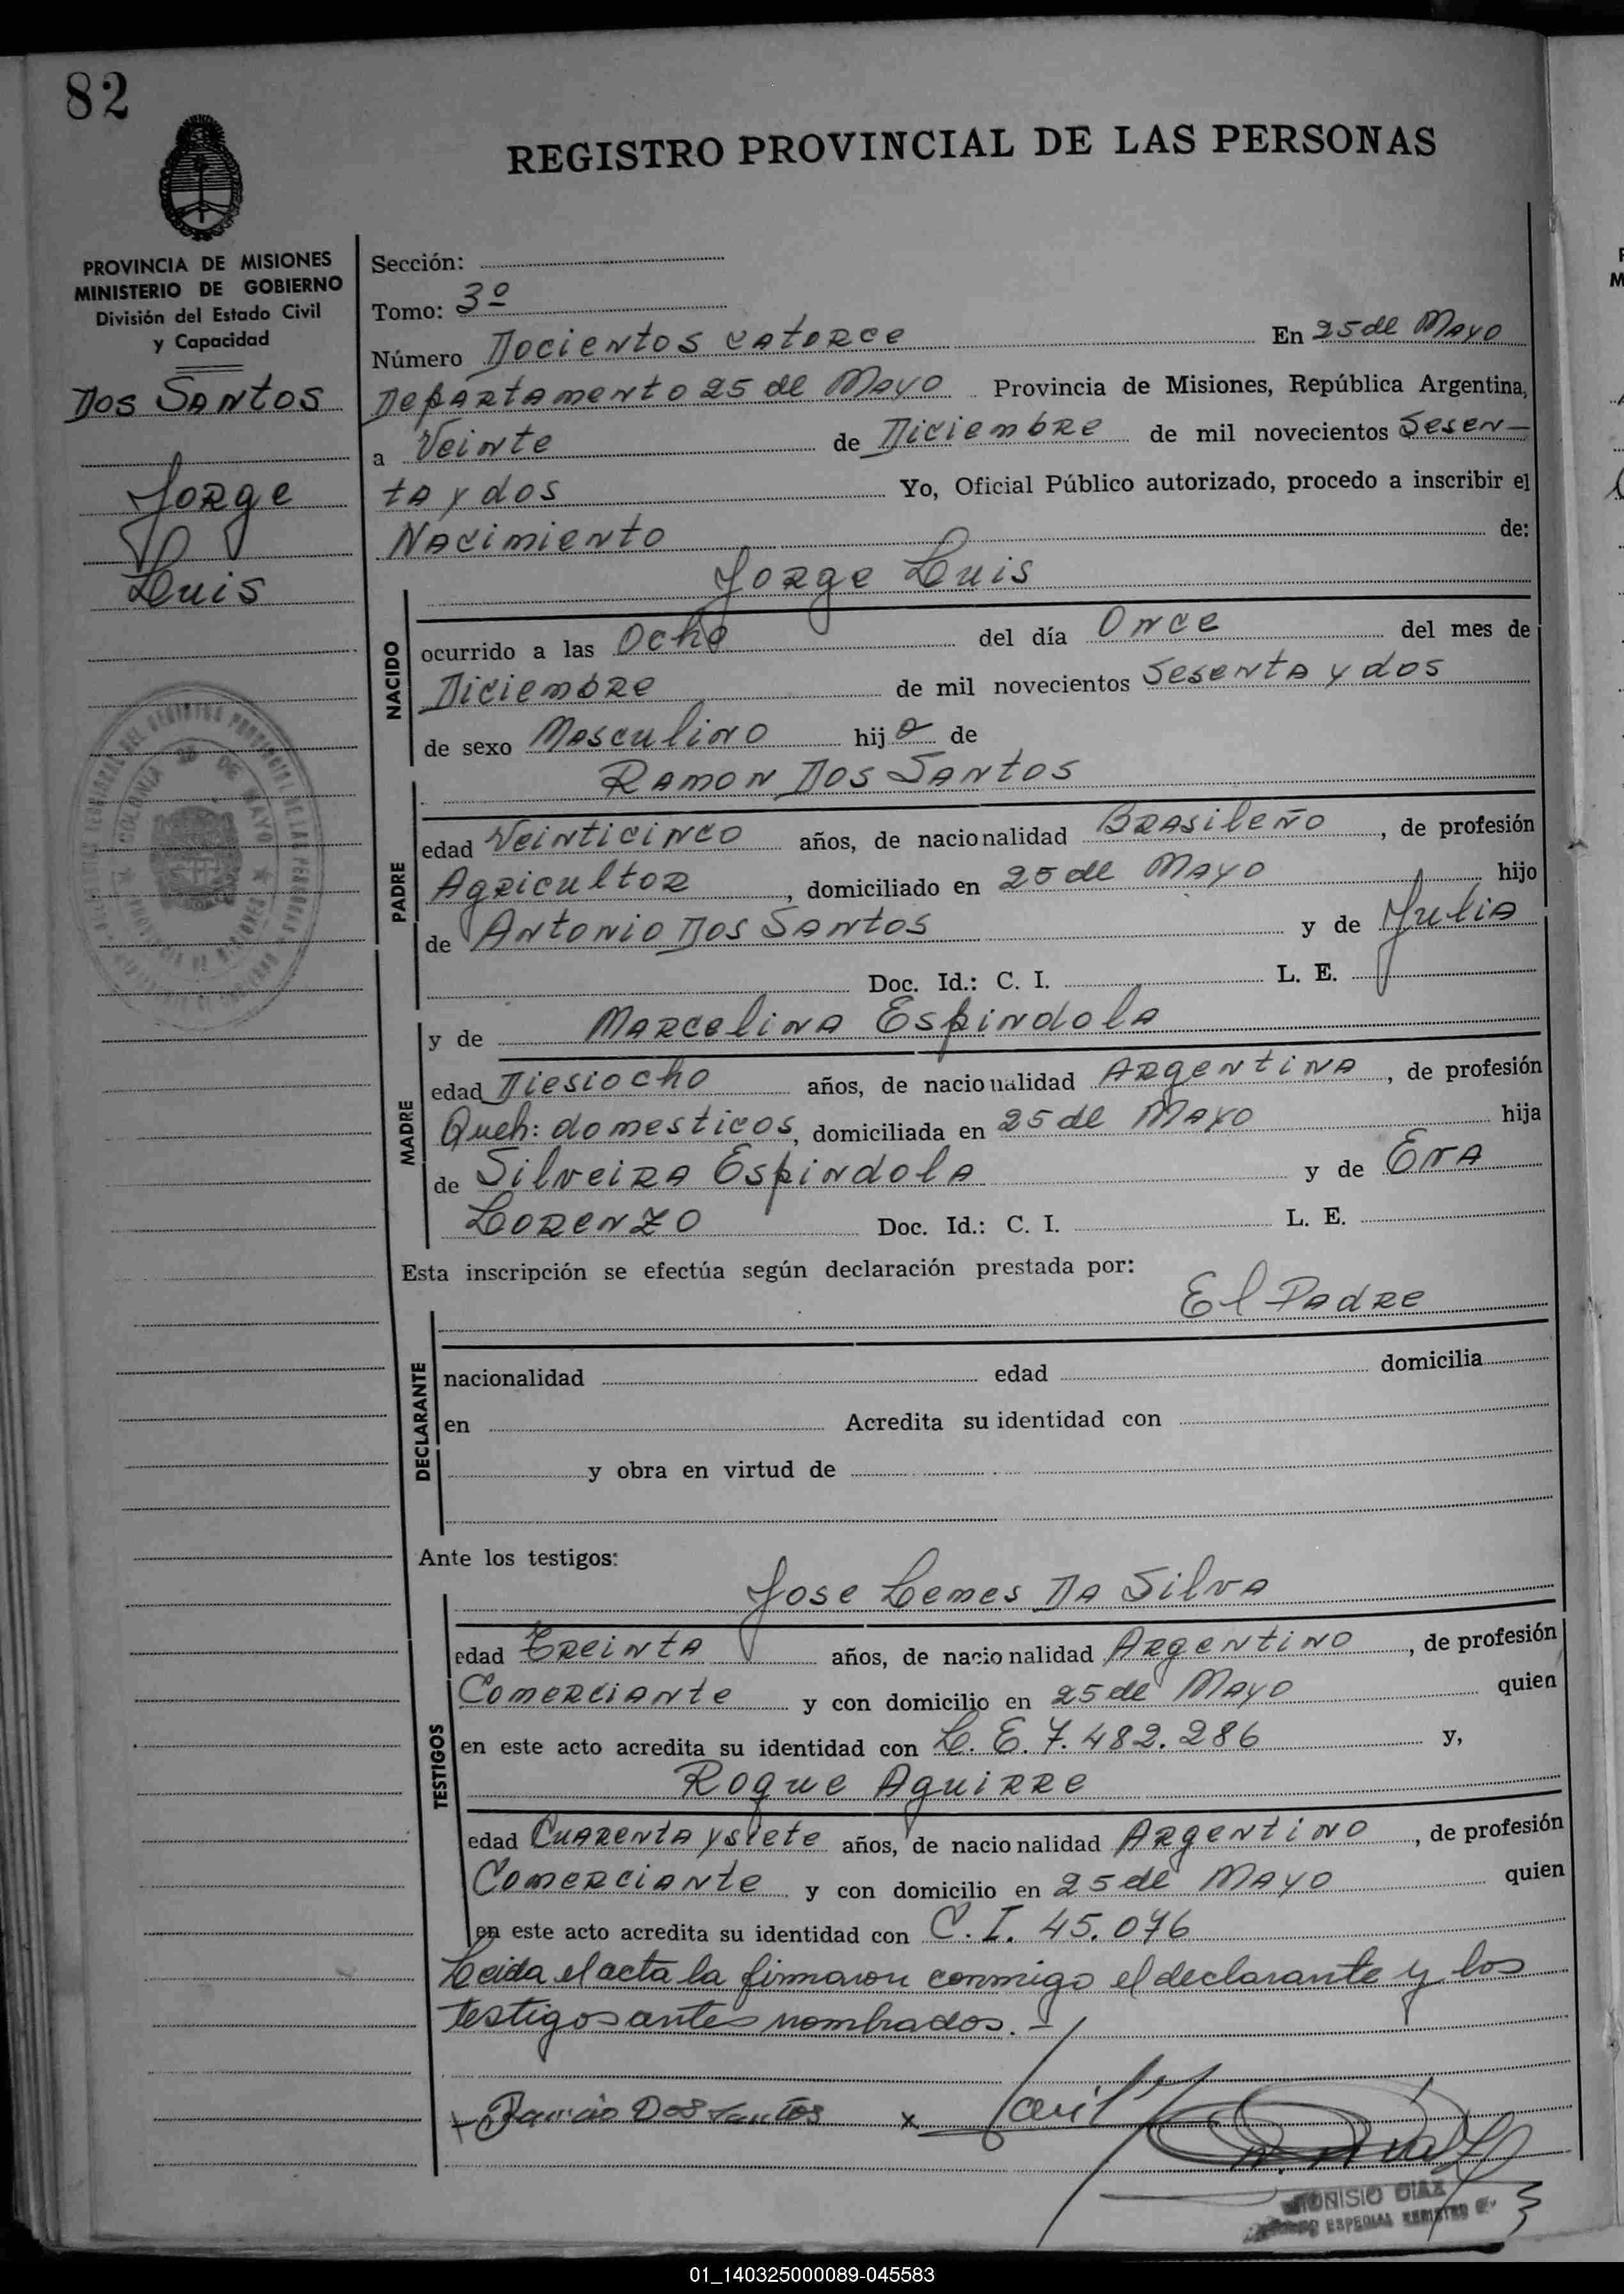 82
REGISTRO PROVINCIAL DE LAS PERSONAS
PROVINCIA DE MISIONES
MINISTERIO DE GOBIERNO
División del Estado Civil
y Capacidad
Dos Santos
Jorge
Luis
Sección:
Tomo: 3º
Número Docientos catorce En 25 de Mayo
Departamento 25 de Mayo Provincia de Misiones, República Argentina,
a Veinte de Diciembre de mil novecientos Sesen-
ta y dos Yo, Oficial Público autorizado, procedo a inscribir el
Nacimiento de:
Jorge Luis
NACIDO
ocurrido a las Ocho del día Once del mes de
Diciembre de mil novecientos Sesenta y dos
de sexo Masculino hijo de
Ramon Dos Santos
PADRE
edad Veinticinco años, de nacionalidad Brasileño, de profesión
Agricultor, domiciliado en 25 de Mayo hijo
de Antonio Dos Santos y de Julia
Doc. Id.: C. I. L. E.
y de Marcelina Espindola
MADRE
edad Diesiocho años, de nacionalidad Argentina, de profesión
Queh: domesticos, domiciliada en 25 de Mayo hija
de Silveira Espindola y de Eva
Lorenzo Doc. Id.: C. I. L. E.
Esta inscripción se efectúa según declaración prestada por:
El Padre
DECLARANTE
nacionalidad edad domicilia
en Acredita su identidad con
y obra en virtud de
Ante los testigos:
Jose Lemes Da Silva
TESTIGOS
edad Treinta años, de nacionalidad Argentino, de profesión
Comerciante y con domicilio en 25 de Mayo quien
en este acto acredita su identidad con L. E. 7.482.286 y,
Roque Aguirre
edad Cuarenta y siete años, de nacionalidad Argentino, de profesión
Comerciante y con domicilio en 25 de Mayo quien
en este acto acredita su identidad con C. I. 45.076
Leida el acta la firmaron conmigo el declarante y los
testigos antes nombrados.-
Dos Santos x
DIONISIO DIAZ
ESPECIAL REGISTRO
01_140325000089-045583